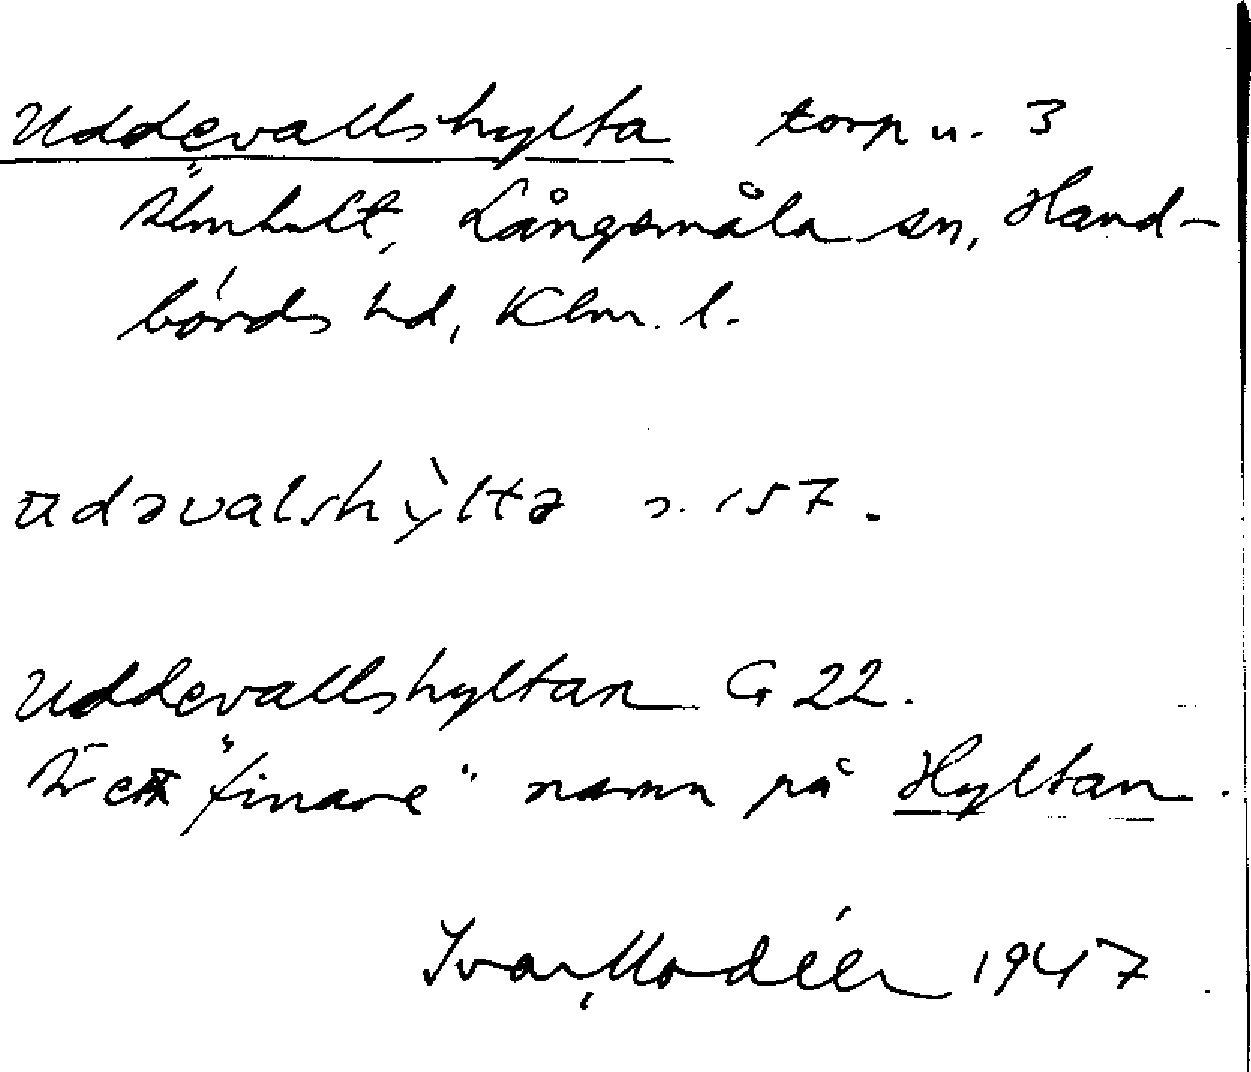 Uddevallshylta torp u. 3
Älmhult, Långemåla sn, Hand-
börds hd, Klm. l.
ūdəvalshỳltə s. 157.
Uddevallshyltan G 22.
Är ett "finare" namn på Hyltan.
Ivar Modéer 1947